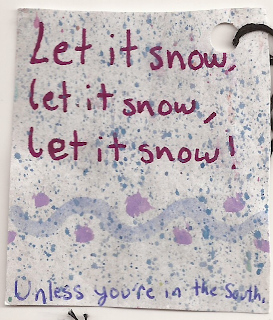 Let it snow,
let it snow,
let it snow!
Unless you're in the South.